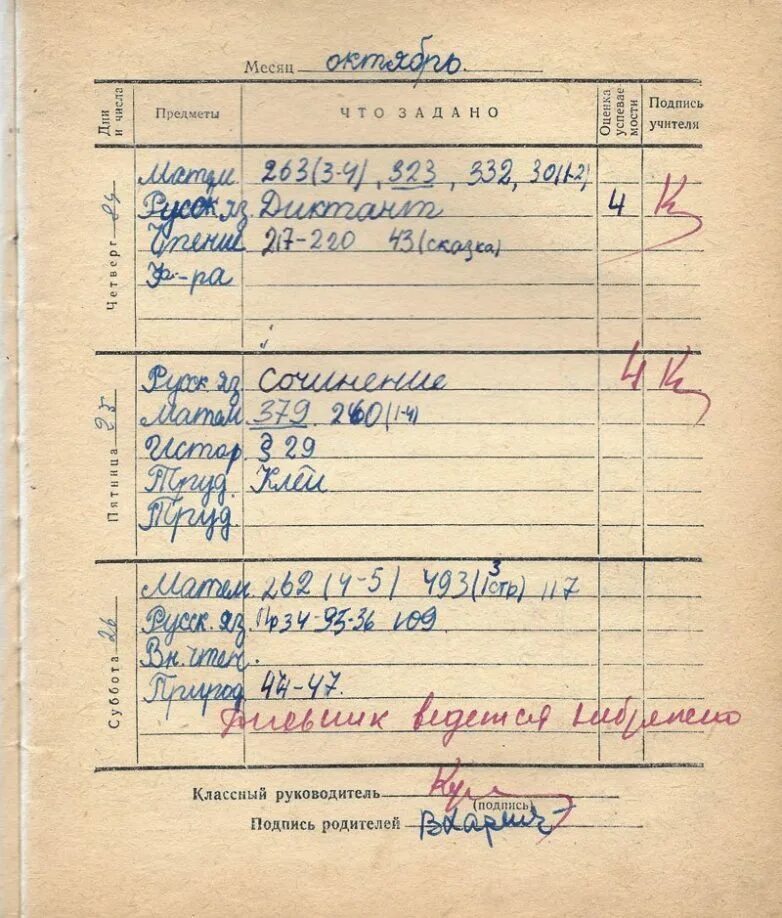 Месяц октябрь
Дни и числа Предметы ЧТО ЗАДАНО Оценка успевае-мости Подпись учителя
Четверг 24
Матем 263(3-4), 323, 332, 30(1-2)
Русск яз Диктант 4 К
Чтение 217-220 43(сказка)
Ф-ра
Пятница 25
Русск яз Сочинение 4 К
Матем 379 260(1-4)
Истор § 29
Труд. Клей
Труд.
Суббота 26
Матем. 262 (4-5) 493(3 1стр) 117
Русск. яз. 109
Вн. чтен.
Природ 44-47.
Дневник ведется небрежно
Классный руководитель
(подпись)
Подпись родителей